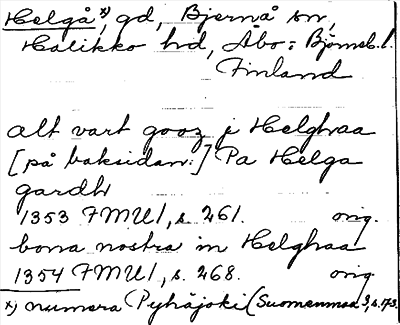 Helgå x), gd, Bjernå sn,
Halikko hd, Åbo o: Björneb. l.
Finland
alt vart gooz j Helghaa
[på baksidan:] Pa Helga
gardh
1353 FMU 1, s. 261. orig.
bona nostra in Helghaa
1354 FMU 1, s. 268. orig.
x) numera Pyhäjoki (Suomenmaa 2, s. 173.